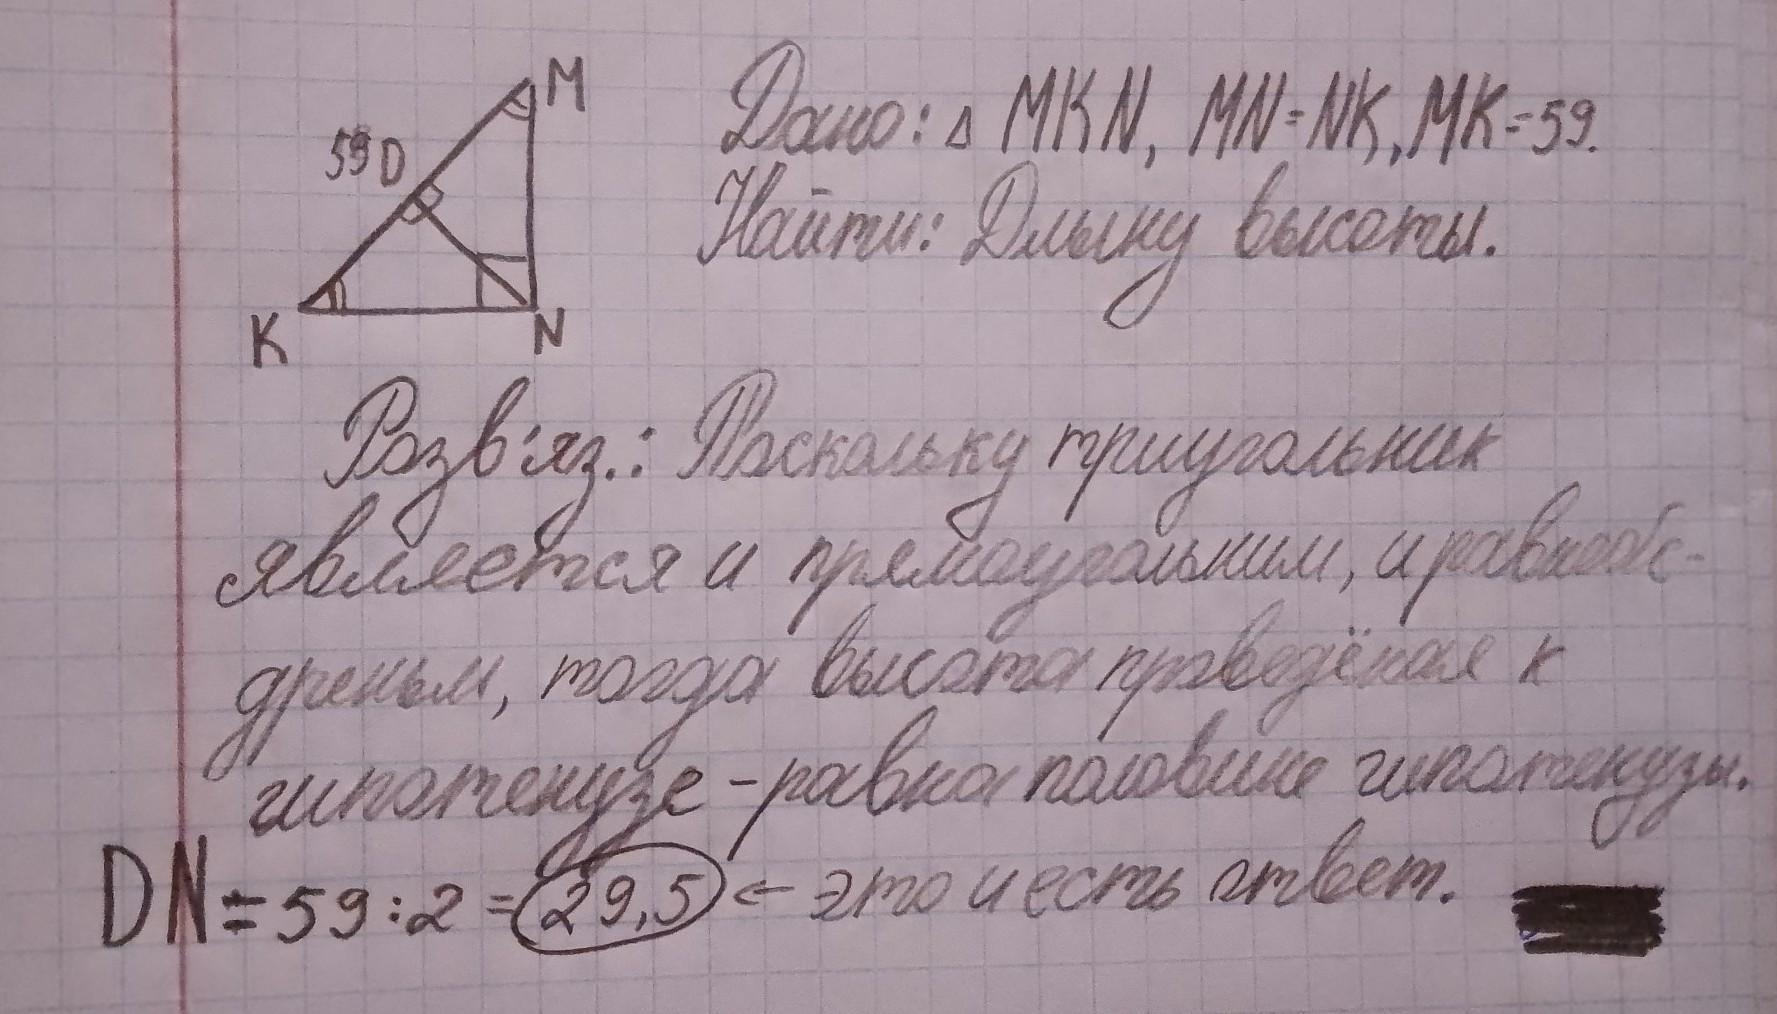 M
59 D
K
N
Дано: Δ MKN, MN=NK, MK=59.
Найти: Длыну высоты.
Розв'яз.: Поскольку триугольник
является и прямоугольним, и равнобе-
дреным, тогда высота проведёная к
гипотенузе - равна половине гипотенузы.
DN=59:2=29,5 ← это и есть ответ.